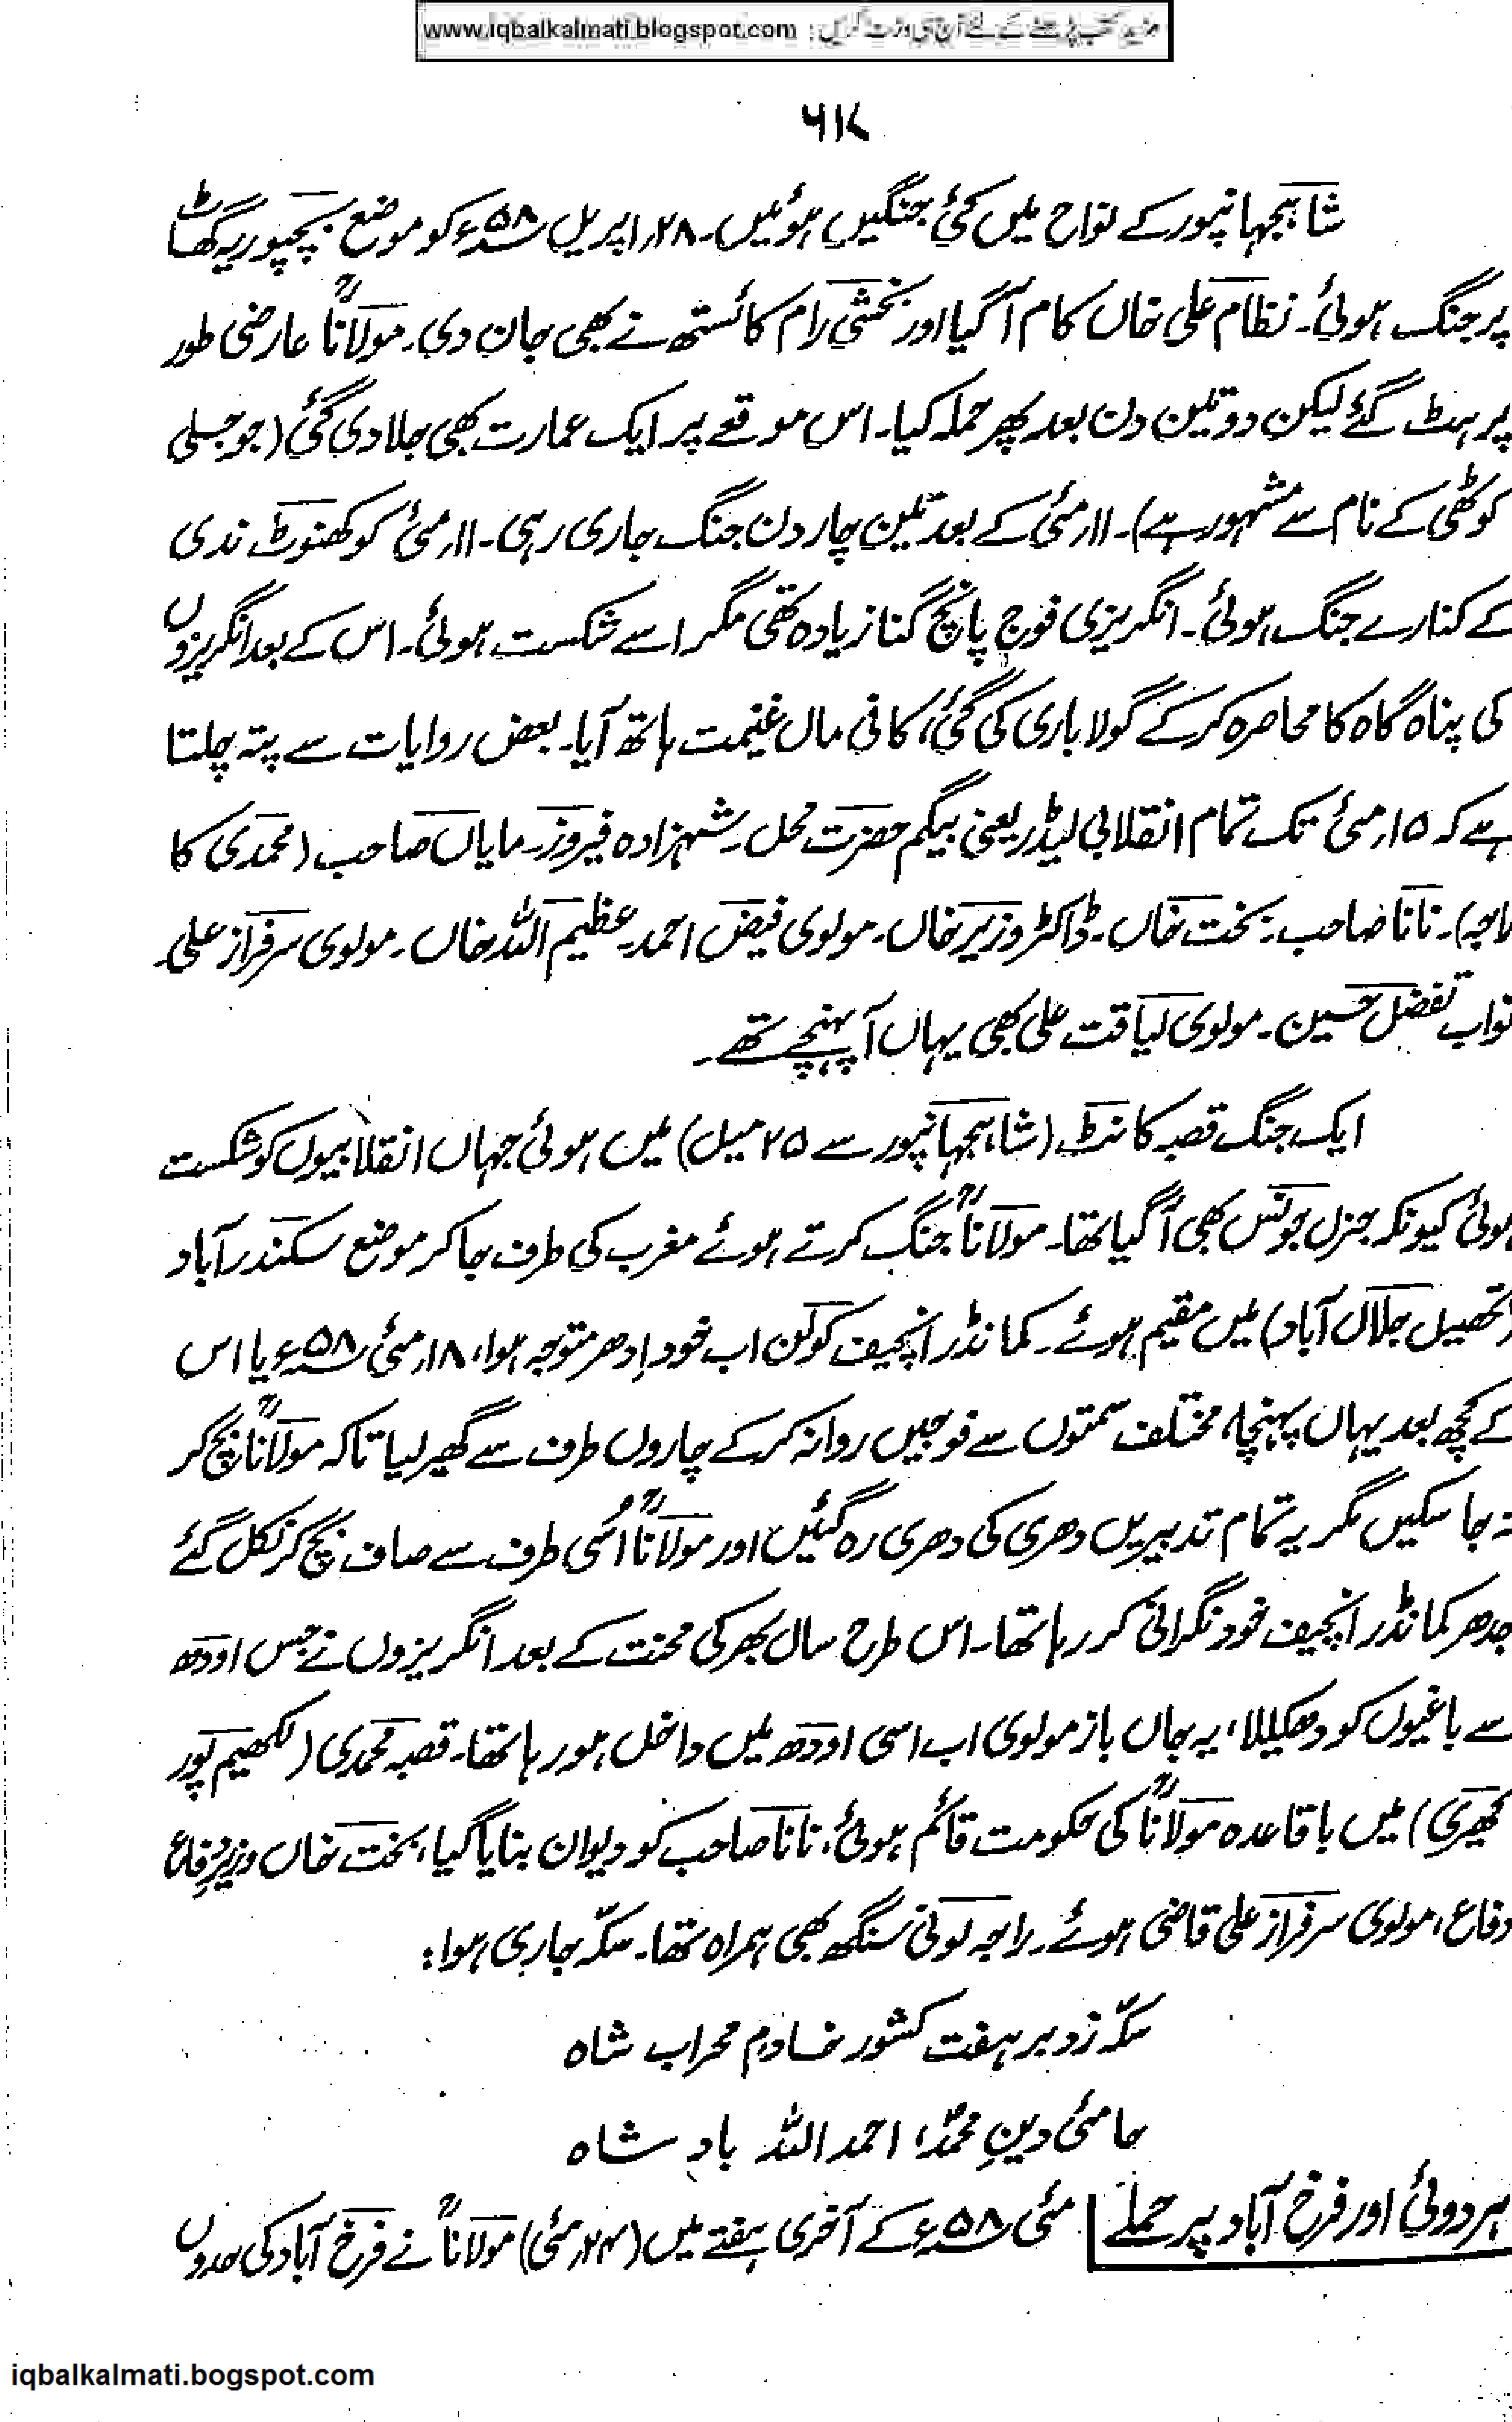 مزید کتب پڑھنے کے لئے آج ہی وزٹ کریں : www.iqbalkalmati.blogspot.com
۶۱۷
شاہجہانپور کے نواح میں کئی جنگیں ہوئیں۔ ۲۸؍ اپریل ۵۸ء کو موضع بیچپوریہ گھاٹ
پر جنگ ہوئی۔ نظام علی خاں کام آگیا اور بخشی رام کائستھ نے بھی جان دی۔ مولاناؒ عارضی طور
پر ہٹ گئے لیکن دو تین دن بعد پھر حملہ کیا۔ اس موقعے پر ایک عمارت بھی جلا دی گئی (جو جلی
کوٹھی کے نام سے مشہور ہے)۔ ۱۱؍ مئی کے بعد تین چار دن جنگ جاری رہی۔ ۱۱؍ مئی کو کھنوٹ ندی
کے کنارے جنگ ہوئی۔ انگریزی فوج پانچ گنا زیادہ تھی مگر اسے شکست ہوئی۔ اس کے بعد انگریزوں
کی پناہ گاہ کا محاصرہ کرکے گولا باری کی گئی، کافی مال غنیمت ہاتھ آیا۔ بعض روایات سے پتہ چلتا
ہے کہ ۱۵؍ مئی تک تمام انقلابی لیڈر یعنی بیگم حضرت محل۔ شہزادہ فیروز۔ مایاں صاحب (محمدی کا
راجہ)۔ نانا صاحب۔ بخت خاں۔ ڈاکٹر وزیر خاں۔ مولوی فیض احمد۔ عظیم اللہ خاں۔ مولوی سرفراز علی۔
نواب تفضل حسین۔ مولوی لیاقت علی بھی یہاں آپہنچے تھے۔
ایک جنگ قصبہ کانٹ (شاہجہانپور سے ۲۵ میل) میں ہوئی جہاں انقلابیوں کو شکست
ہوئی کیونکہ جنرل جونس بھی آگیا تھا۔ مولاناؒ جنگ کرتے ہوئے مغرب کی طرف جا کر موضع سکندر آباد
(تحصیل جلال آباد) میں مقیم ہوئے۔ کمانڈر انچیف کولن اب خود اِدھر متوجہ ہوا، ۱۸؍ مئی ۵۸ء یا اس
کے کچھ بعد یہاں پہنچا، مختلف سمتوں سے فوجیں روانہ کرکے چاروں طرف سے گھیر لیا تاکہ مولاناؒ بچ کر
نہ جا سکیں مگر یہ تمام تدبیریں دھری کی دھری رہ گئیں اور مولاناؒ اُسی طرف سے صاف بچ کر نکل گئے
جدھر کمانڈر انچیف خود نگرانی کر رہا تھا۔ اس طرح سال بھر کی محنت کے بعد انگریزوں نے جس اودھ
سے باغیوں کو دھکیلا، یہ جاں باز مولوی اب اسی اودھ میں داخل ہو رہا تھا۔ قصبہ محمدی (لکھیم پور
کھیری) میں باقاعدہ مولاناؒ کی حکومت قائم ہوئی، نانا صاحب کو دیوان بنایا گیا، بخت خاں وزیرِ دفاع
دفاع، مولوی سرفراز علی قاضی ہوئے۔ راجہ لونی سنگھ بھی ہمراہ تھا۔ سکّہ جاری ہوا:
سکّہ زد بر ہفت کشور خادم محراب شاہ
حامئی دینِ محمدؐ، احمد اللہ بادشاہ
ہردوئی اور فرخ آباد پر حملے مئی ۵۸ء کے آخری ہفتے میں (۲۴؍ مئی) مولاناؒ نے فرخ آباد کی حدوں
iqbalkalmati.bogspot.com